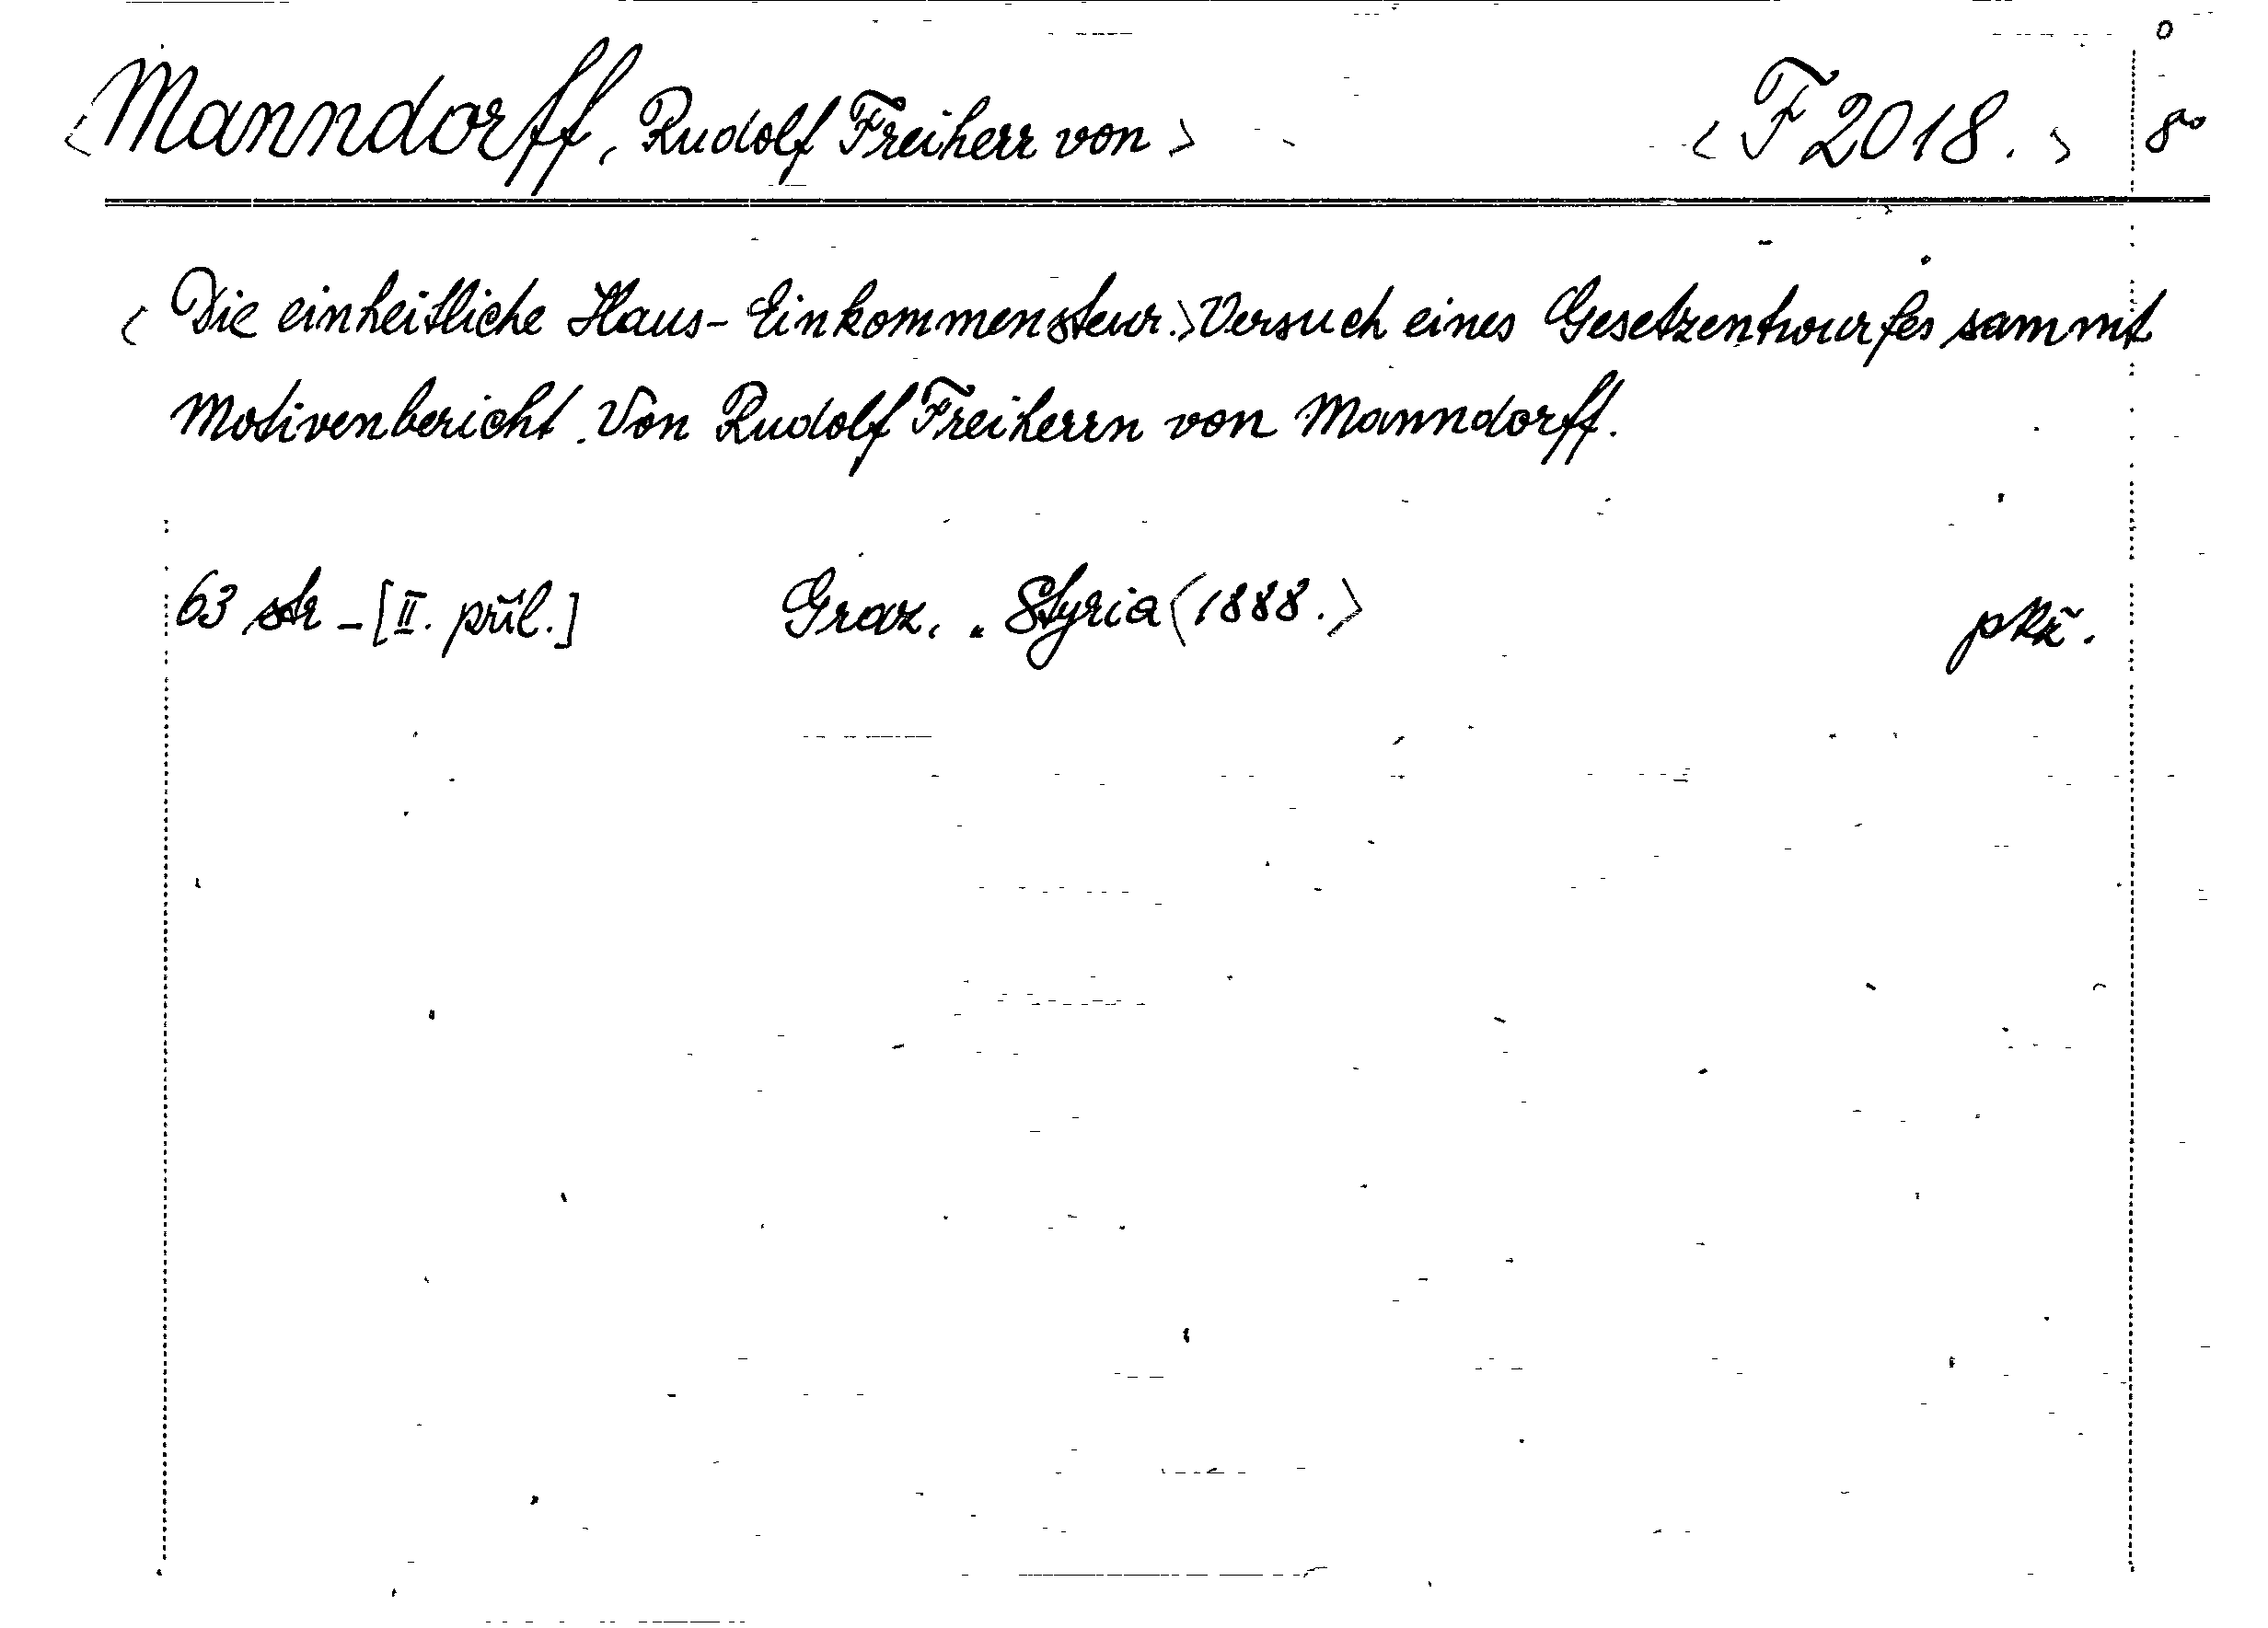 <Manndorff, Rudolf Freiherr von> <F 2018.> 8°
<Die einheitliche Haus-Einkommensteur.> Versuch eines Gesetzentwurfes sammt
Motivenbericht. Von Rudolf Freiherrn von Manndorff.
63 str - [II. příl.] Graz, „Styria <1888.>